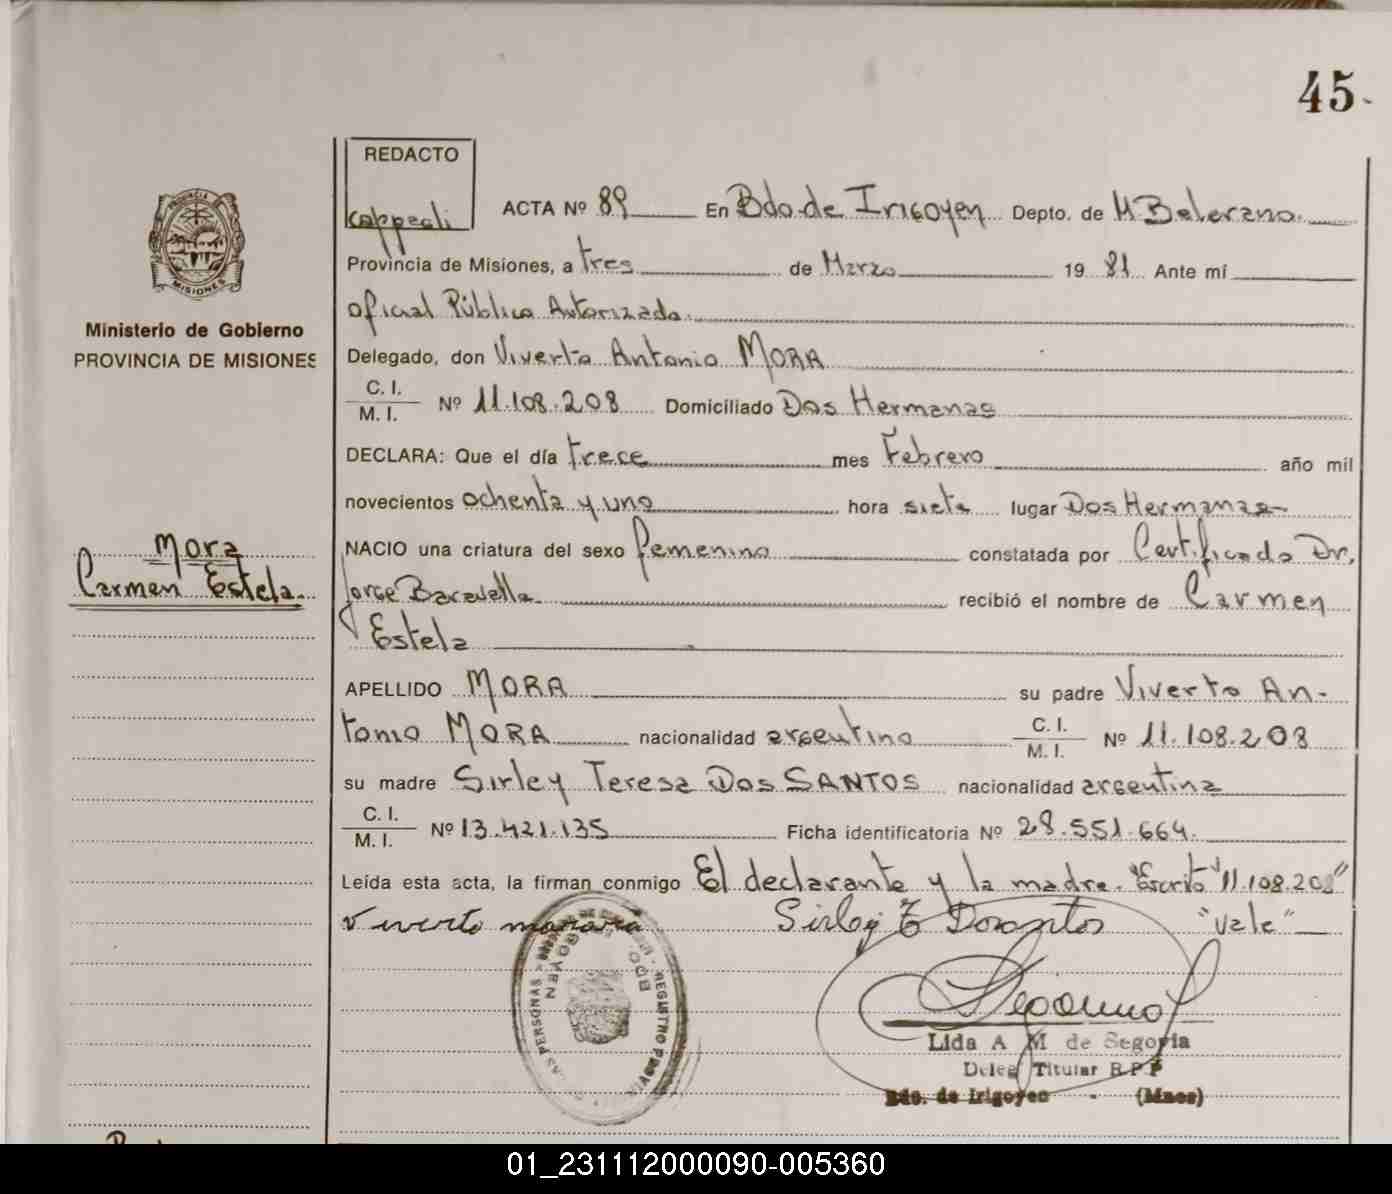 45
REDACTO
Kappeoli
ACTA Nº 89 En Bdo. de Irigoyen Depto. de M Belgrano.
Provincia de Misiones, a tres de Marzo 19 81 Ante mí
oficial Público Autorizado
Delegado, don Viverto Antonio MORA
C. I.
M. I. Nº 11.108.208 Domiciliado Dos Hermanas
DECLARA: Que el día trece mes Febrero año mil
novecientos ochenta y uno hora siete lugar Dos Hermanas
NACIO una criatura del sexo femenino constatada por Certificado Dr.
Jorge Baravella recibió el nombre de Carmen
Estela
APELLIDO MORA su padre Viverto An-
tonio MORA nacionalidad argentino C. I. M. I. Nº 11.108.208
su madre Sirley Teresa Dos SANTOS nacionalidad argentina
C. I.
M. I. Nº 13.421.135 Ficha identificatoria Nº 28.551.664.
Leída esta acta, la firman conmigo El declarante y la madre. "Escrito" 11.108.208"
Viverto Sirley T Dosantos "Vale"
Ministerio de Gobierno
PROVINCIA DE MISIONES
Mora
Carmen Estela
PROVINCIA DE
MISIONES
LAS PERSONAS - REGISTRO PROVIN
BDO. YRIGOYEN
Lida A M de Segovia
Deleg Titular R.P.P
Bdo. de Irigoyen - (Mnes)
01_231112000090-005360